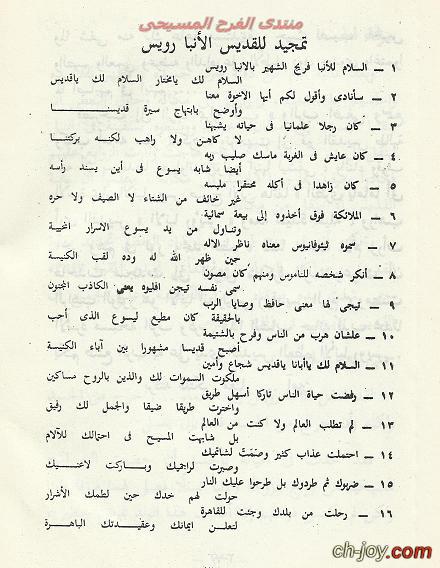 منتدى الفرح المسيحى
تمجيد للقديس الأنبا رويس
١ ــ السلام للأنبا فريج الشهير بالانبا رويس
السلام لك يامختار السلام لك ياقديس
٢ ــ سأنادى وأقول لكم أيها الاخوة معنا
وأوضح بابتهاج سيرة قديسنا
٣ ــ كان رجلا علمانيا فى حياته يشبهنا
لا كاهن ولا راهب لكنه بركتنا
٤ ــ كان عايش فى الغربة ماسك صليب ربه
أيضا شابه يسوع فى أين يسند رأسه
٥ ــ كان زاهدا فى أكله محتقرا ملبسه
غير خائف من الشتاء لا الصيف ولا حره
٦ ــ الملائكة فوق أخذوه إلى بيعة سمائية
وتناول من يد يسوع الاسرار المحيية
٧ ــ سموه ثيئوفانيوس معناه ناظر الاله
حين ظهر الله له وده لقب الكنيسة
٨ ــ أنكر شخصه للناموس ومنهم كان مصون
سمى نفسه تيجن افليوه يعنى الكاذب المجنون
٩ ــ تيجى لها معنى حافظ وصايا الرب
بالحقيقة كان مطيع ليسوع الذى أحب
١٠ ــ علشان هرب من الناس وفرح بالشتيمة
أصبح قديسا مشهورا بين آباء الكنيسة
١١ ــ السلام لك ياأبانا ياقديس شجاع وأمين
ملكوت السموات لك والذين بالروح مساكين
١٢ ــ رفضت حياة الناس تاركا أسهل طريق
واخترت طريقا ضيقا والجمل لك رفيق
١٣ ــ لم تطلب العالم ولا كنت من العالم
بل شابهت المسيح فى احتمالك للآلام
١٤ ــ احتملت عذاب كثير وصَمَتّ لشاتميك
وصبرت لراجميك وباركت لاعنيك
١٥ ــ ضربوك ثم طردوك بل طرحوا عليك النار
حولت لهم خدك حين لطمك الأشرار
١٦ ــ رحلت من بلدك وجئت للقاهرة
لتعلن ايمانك وعقيدتك الباهرة
ch-joy.com